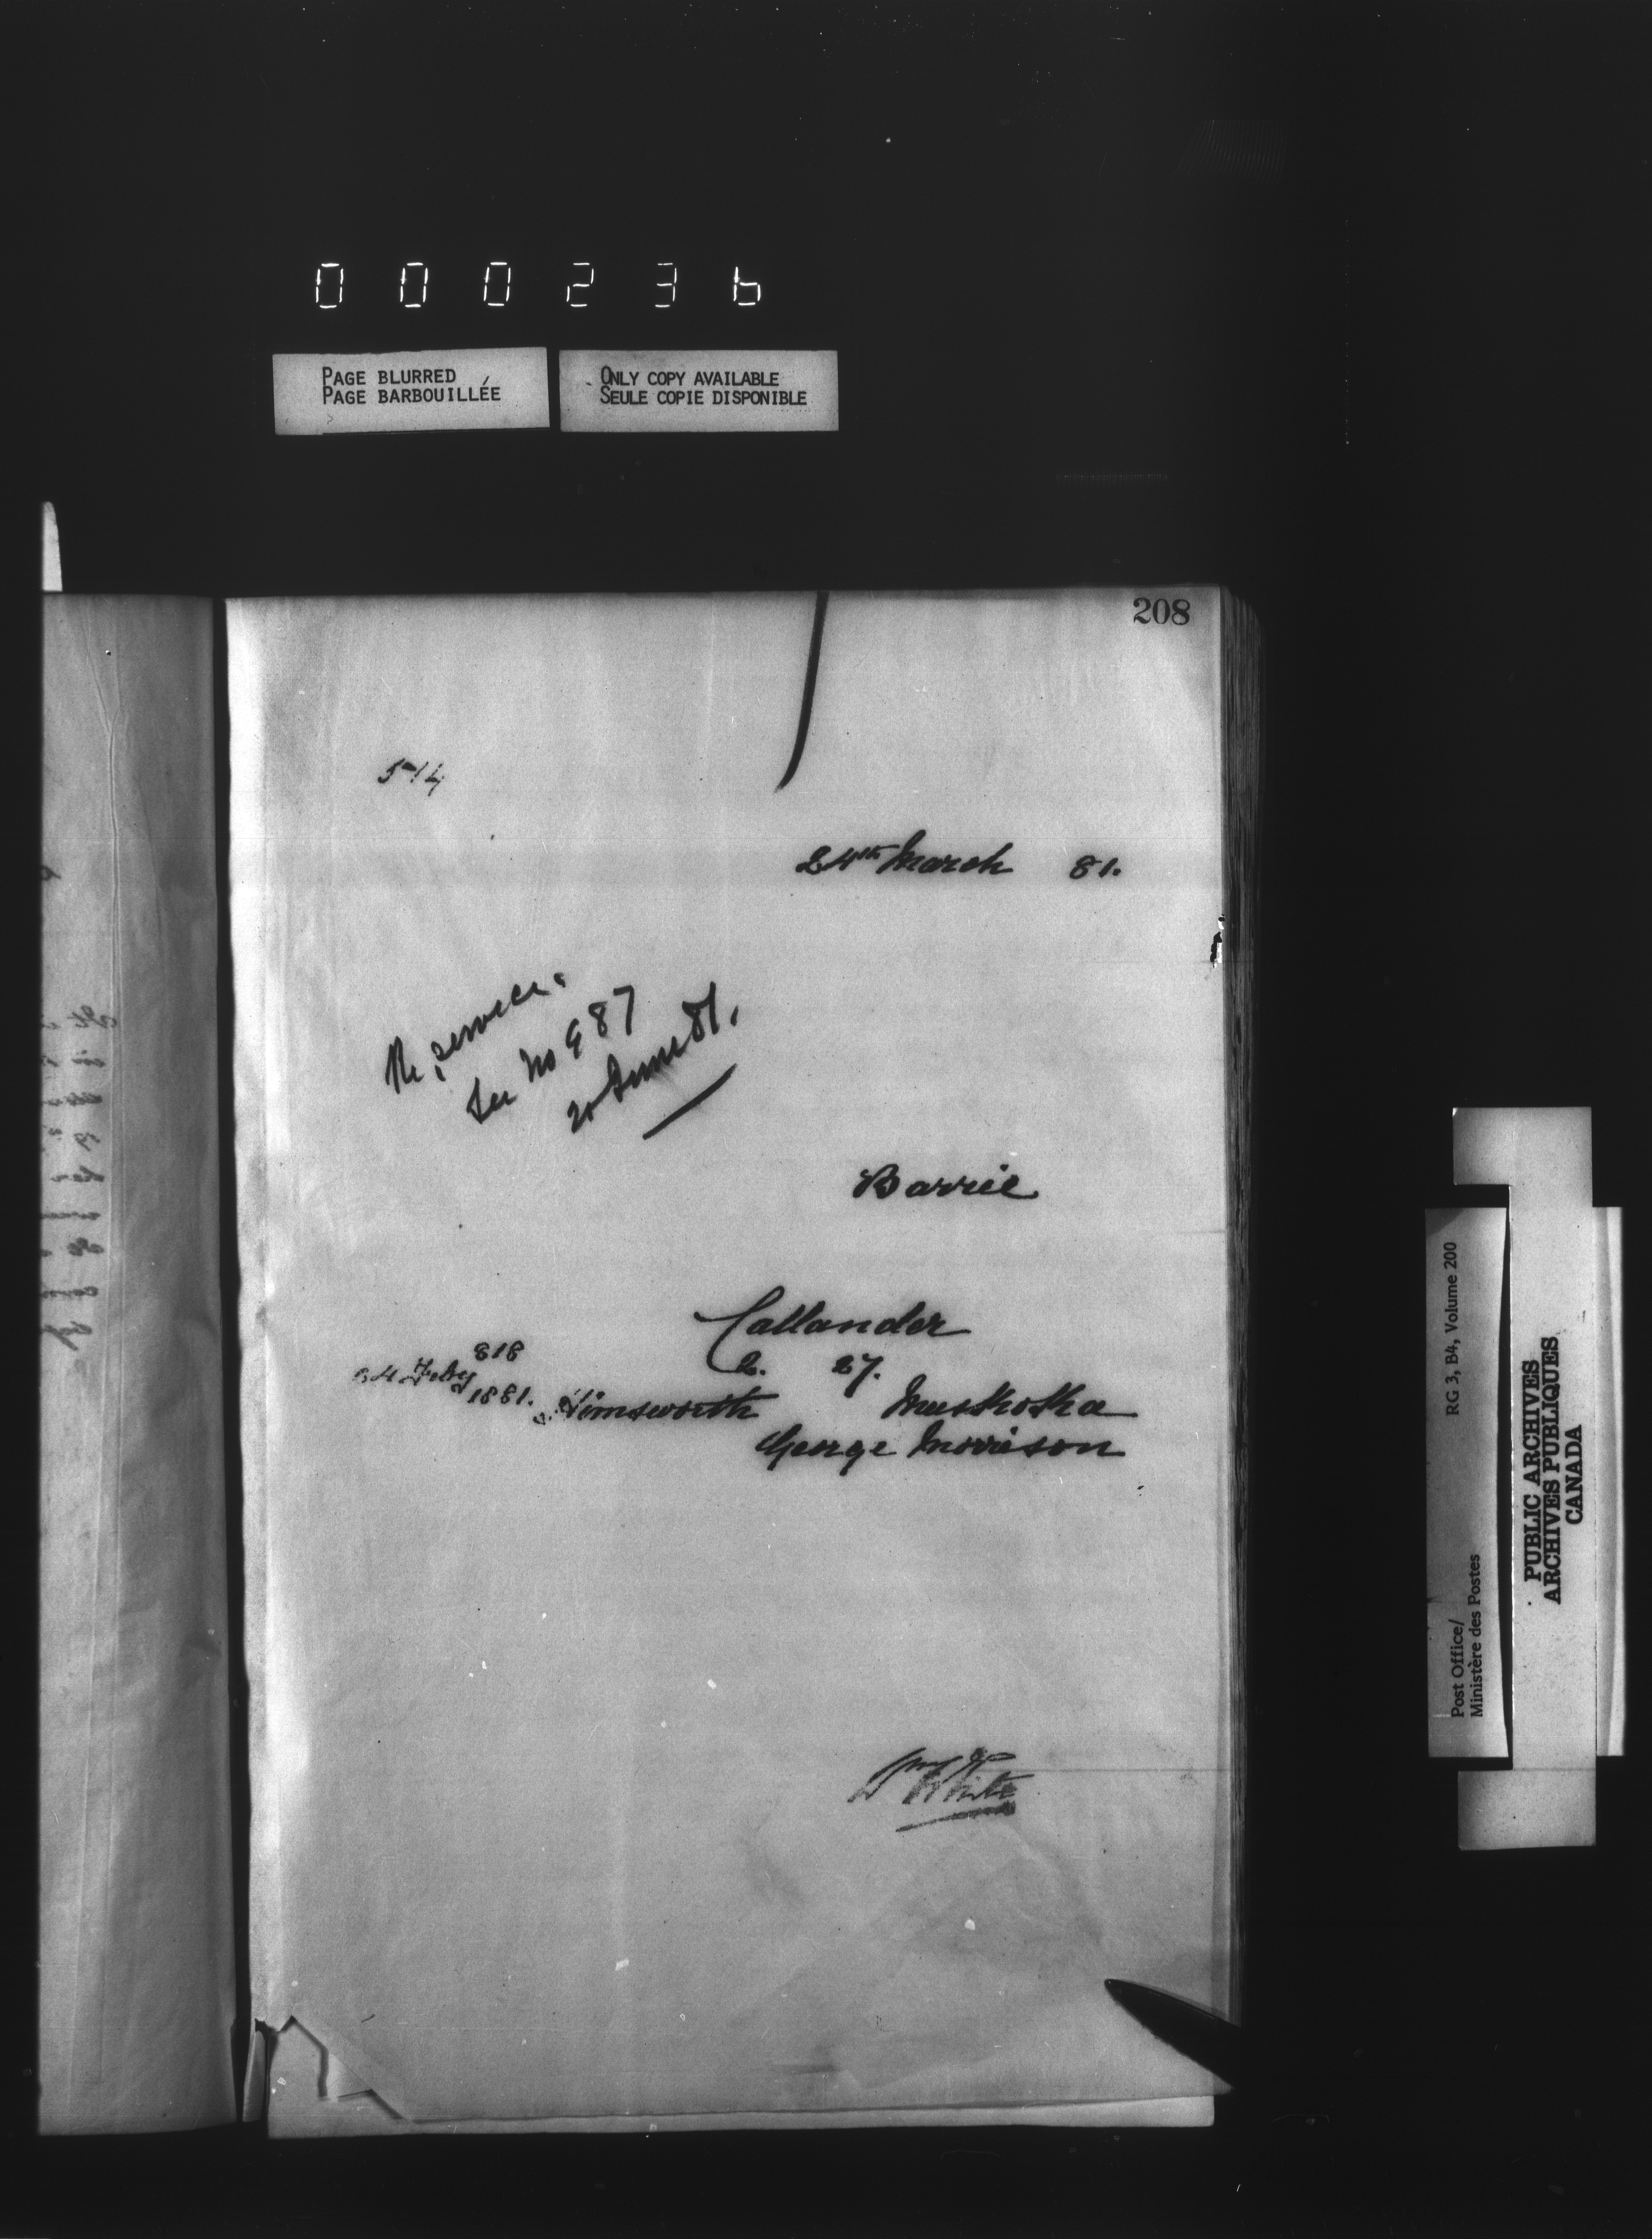 000236
PAGE BLURRED
PAGE BARBOUILLÉE
ONLY COPY AVAILABLE
SEULE COPIE DISPONIBLE
208
514
24th March 81.
Re service.
See No 987
20 June 81.
Barrie
Callander
818
2. 27.
24 Feby
1881.
Himsworth Muskoka
George Morrison
White
RG 3, B4, Volume 200
Post Office/
Ministère des Postes
PUBLIC ARCHIVES
ARCHIVES PUBLIQUES
CANADA